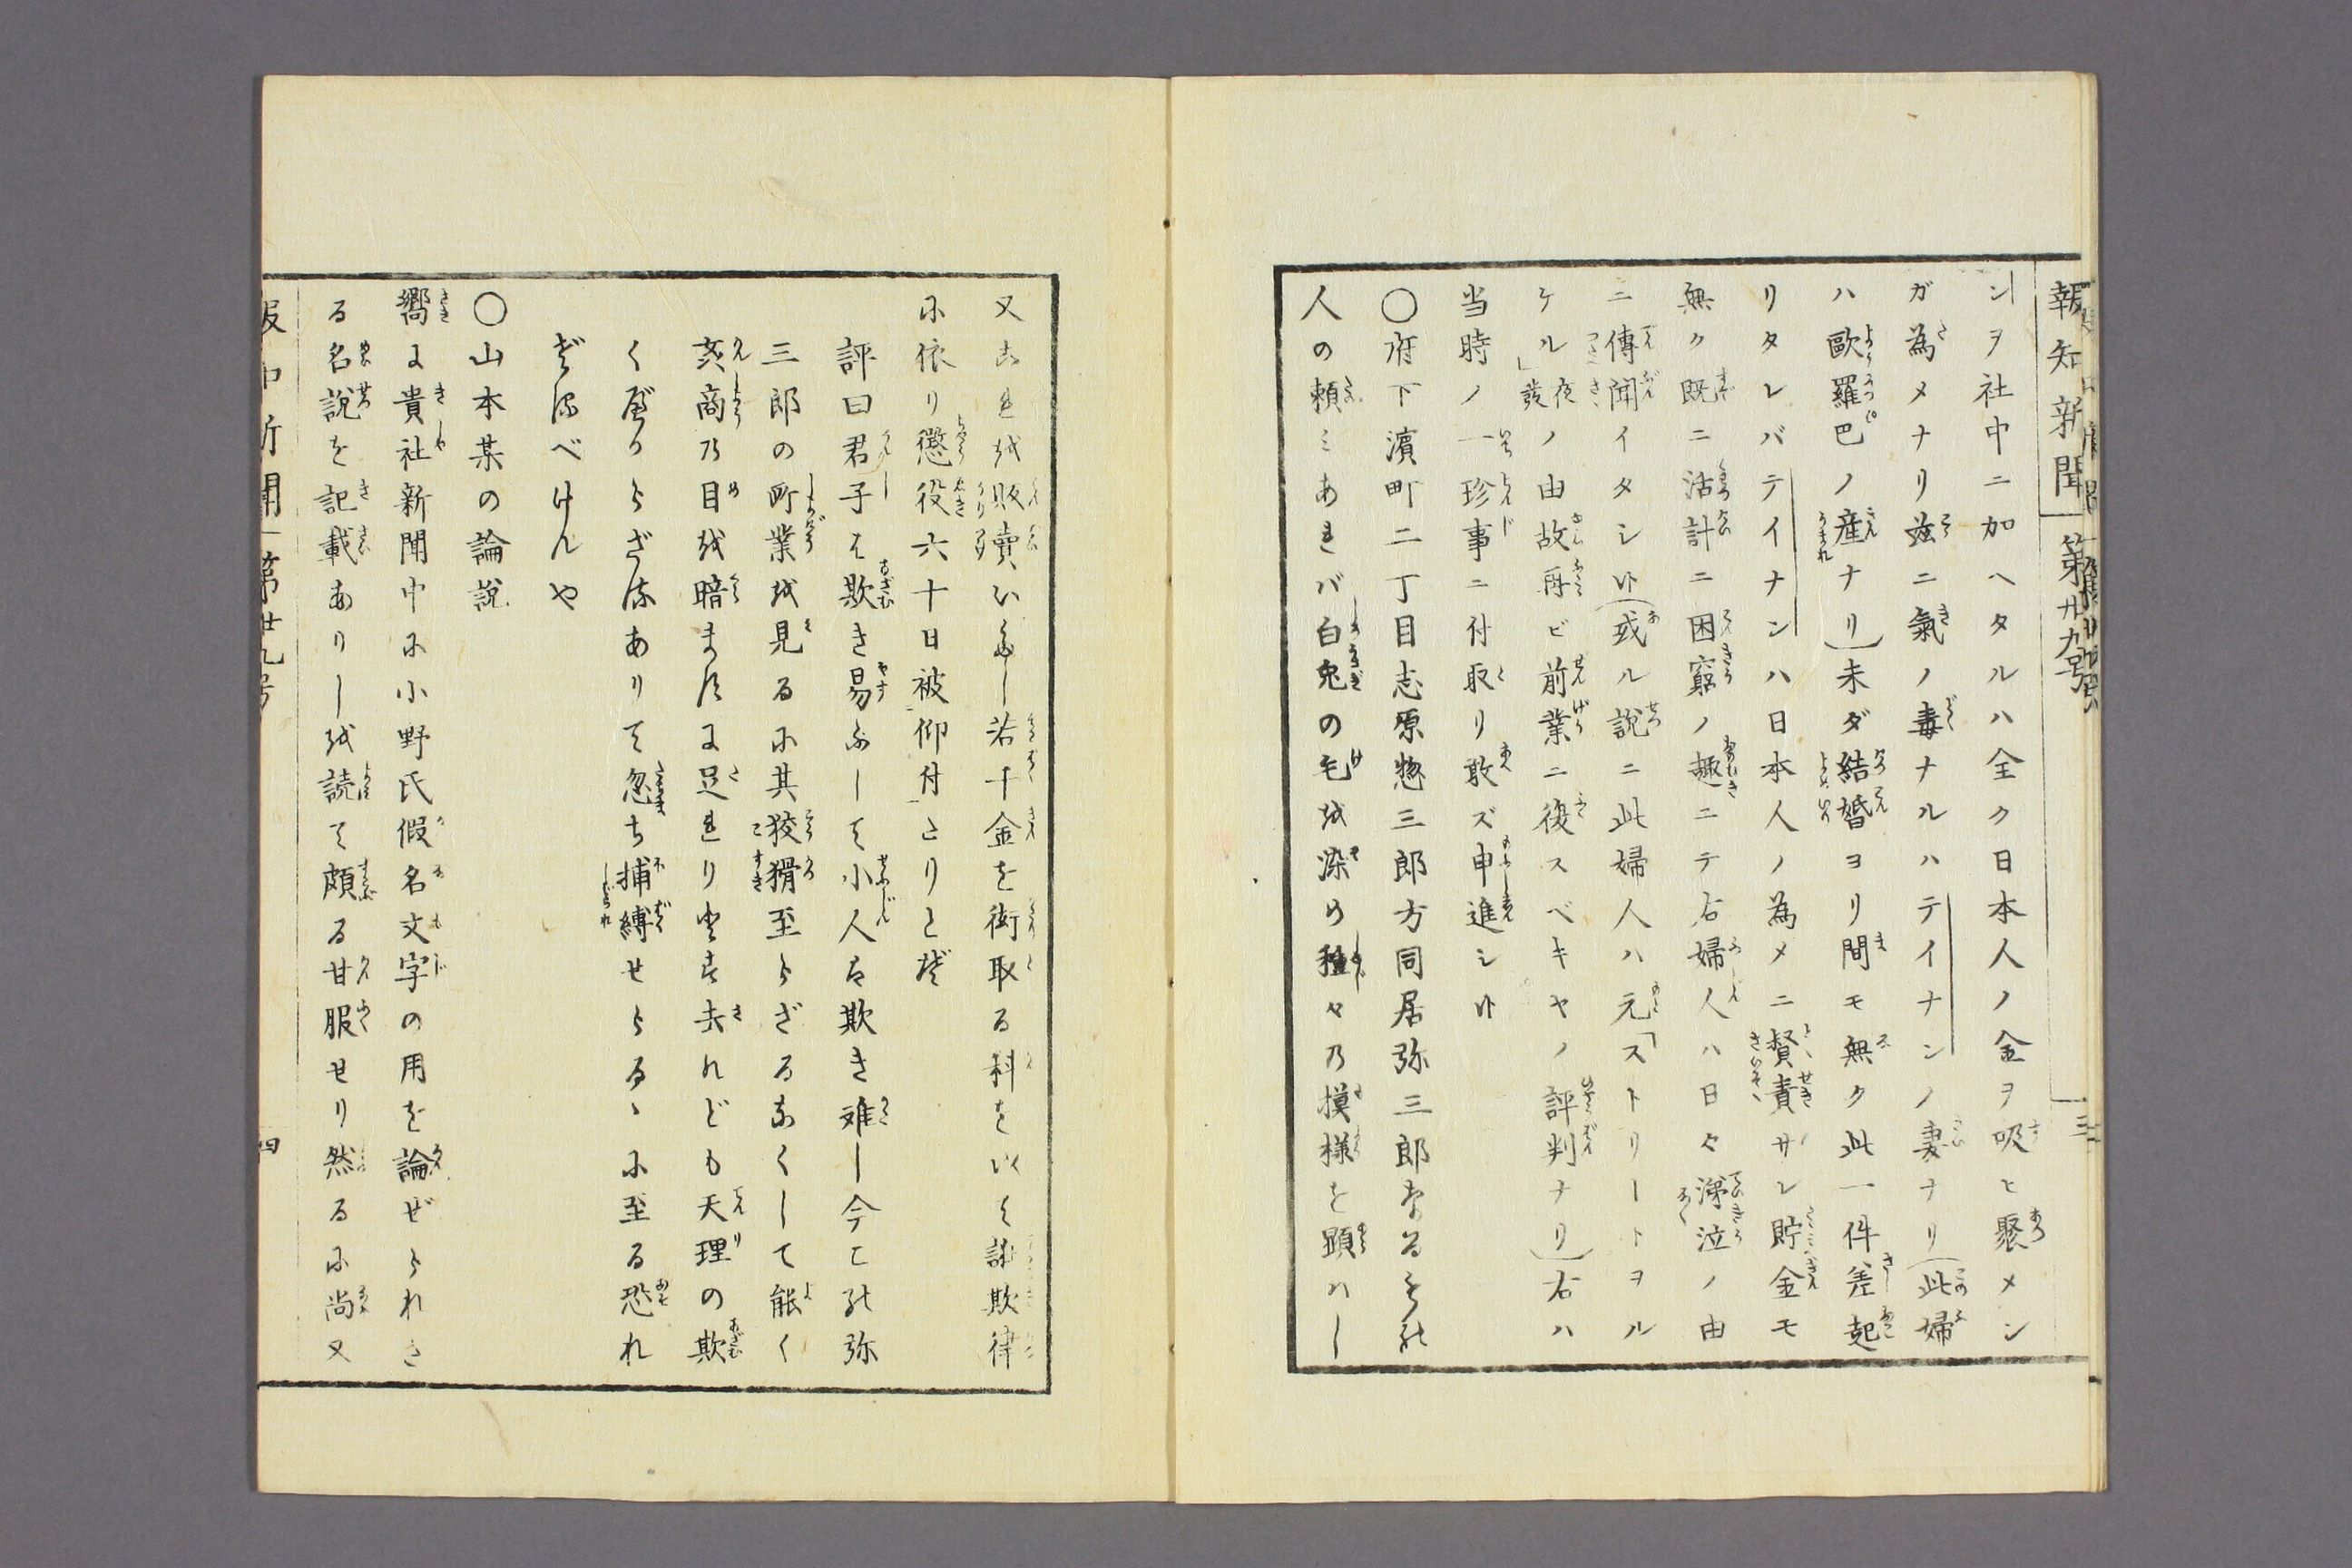 報知新聞 第廿九号 三
ンヲ社中ニ加ヘタルハ全ク日本人ノ金ヲ吸ヒ聚メン
ガ為メナリ玆ニ氣ノ毒ナルハテイナンノ妻ナリ(此婦
ハ歐羅巴ノ産ナリ)未ダ結婚ヨリ間モ無ク此一件差起
リタレバテイナンハ日本人ノ為メニ督責サレ貯金モ
無ク既ニ活計ニ困窮ノ趣ニテ右婦人ハ日々涕泣ノ由
ニ傳聞イタシ候(或ル說ニ此婦人ハ元「ストリートヲル
ケル」夜發ノ由故再ビ前業ニ復スベキヤノ評判ナリ)右ハ
当時ノ一珍事ニ付取リ敢ズ申進シ候
○府下濱町二丁目志原惣三郎方同居弥三郎なるもの
人の頼ミあれバ白兎の毛を染め種々の摸様を顕ハし
又これを販賣ひ多し若干金を衒取る科を以て詐欺律
に依り懲役六十日被仰付たりとぞ
評曰君子は欺き易ふして小人は欺き難し今この弥
三郎の所業を見るに其狡猾至らざるなくして能く
亥商の目を暗ますに足れり然れども天理の欺
く可らざるありて忽ち捕縛せらるゝに至る恐れ
ざるべけんや
○山本某の論説
嚮に貴社新聞中に小野氏假名文字の用を論ぜられた
る名説を記載ありしを読て頗る甘服せり然るに尚又
報知新聞 第廿九号 四